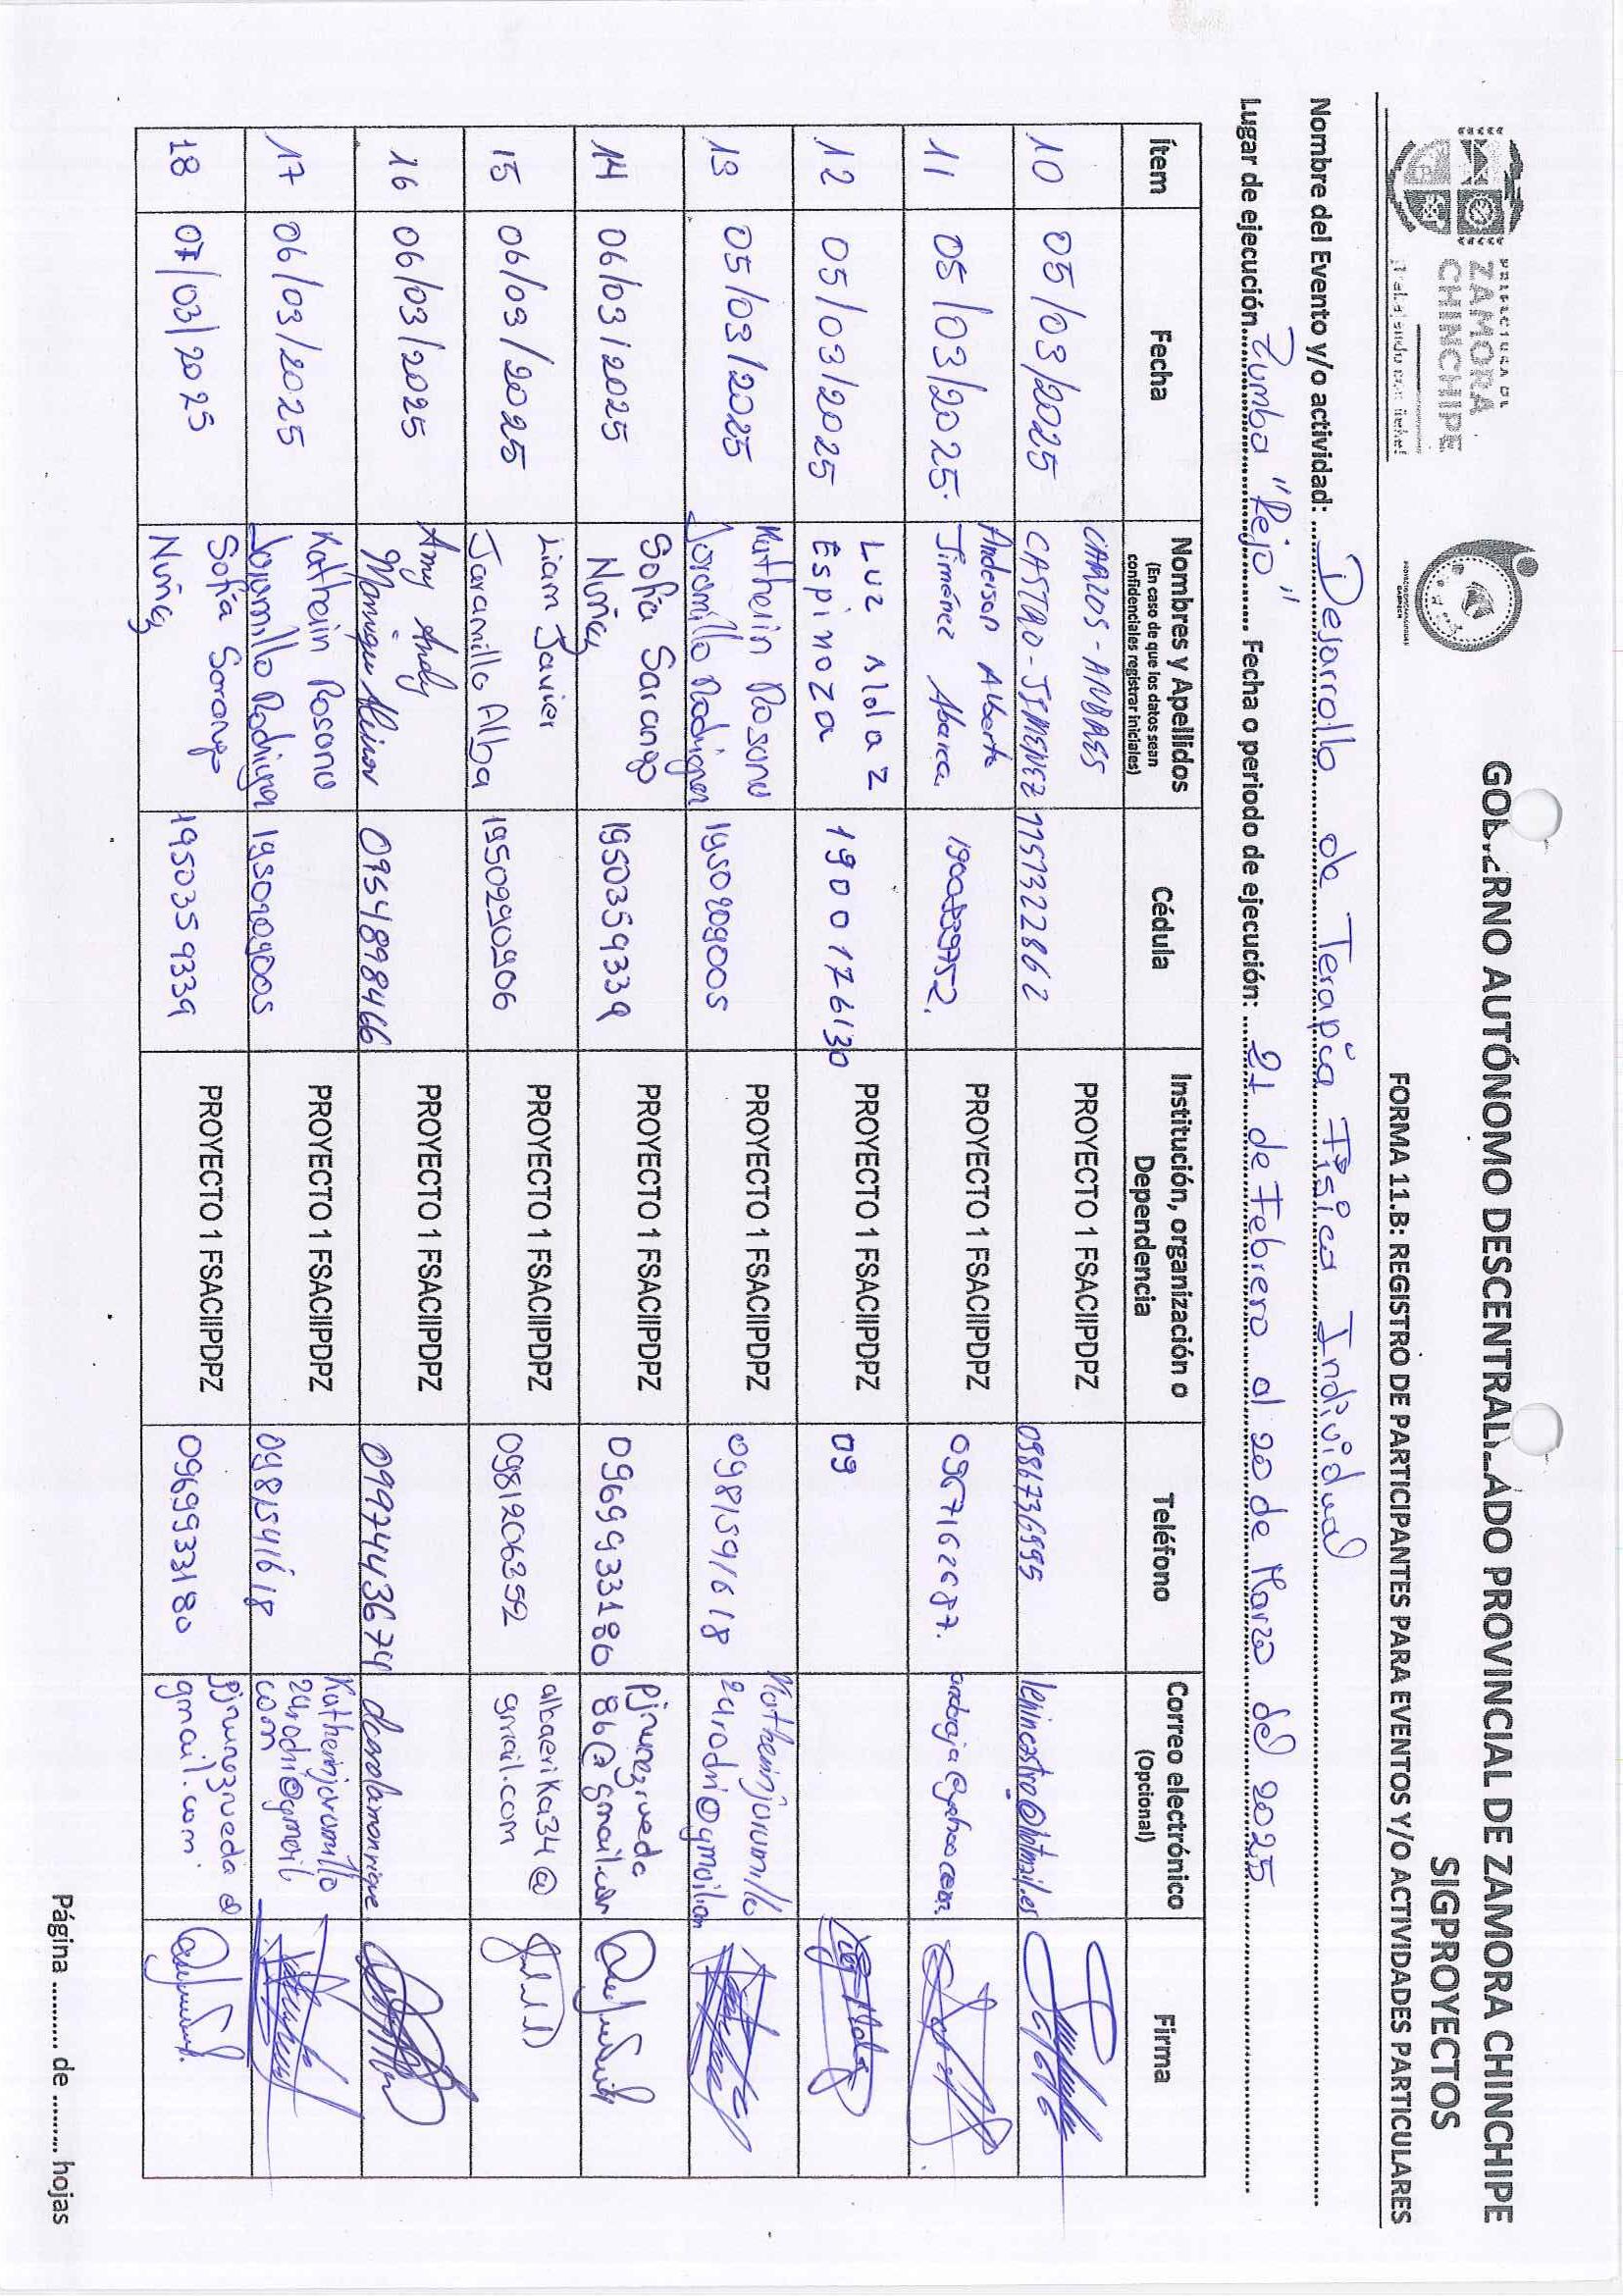 PREFECTURA DE
ZAMORA
CHINCHIPE
GOBIERNO AUTÓNOMO DESCENTRALIZADO PROVINCIAL DE ZAMORA CHINCHIPE
SIGPROYECTOS
FORMA 11.B: REGISTRO DE PARTICIPANTES PARA EVENTOS Y/O ACTIVIDADES PARTICULARES
Nombre del Evento y/o actividad: Desarrollo de Terapia Física Individual
Lugar de ejecución Zumba "Rejo" Fecha o periodo de ejecución: 21 de Febrero al 20 de Marzo del 2025
Ítem Fecha Nombres y Apellidos (En caso de que los datos sean confidenciales registrar iniciales) Cédula Institución, organización o Dependencia Teléfono Correo electrónico (Opcional) Firma
10 05/03/2025 CARLOS-ANDRES CASTRO-JIMENEZ 1151322862 PROYECTO 1 FSACIIPDPZ 0986736995 lenincastro@hotmail.es
11 05/03/2025. Anderson Alberto Jiménez Abarca. PROYECTO 1 FSACIIPDPZ 0967162687.
12 05/03/2025 Luz Aldaz Espinoza 1900176130 PROYECTO 1 FSACIIPDPZ 09
13 05/03/2025 Katherin Rosana Jaramillo Rodriguez 1950209005 PROYECTO 1 FSACIIPDPZ 0981591618 Katherinjaramillo 24rodri@gmail.com
14 06/03/2025 Sofía Sarango Nuñez 1950359339 PROYECTO 1 FSACIIPDPZ 0969933180 pjnunezrueda 86@gmail.com
15 06/03/2025 Liam Javier Jaramillo Alba 1950290906 PROYECTO 1 FSACIIPDPZ 0981206252 albaerika34@ gmail.com
16 06/03/2025 Amy Andy Manrique 0954898466 PROYECTO 1 FSACIIPDPZ 0997443674
17 06/03/2025 Katherin Rosana Jaramillo Rodriguez 1950209005 PROYECTO 1 FSACIIPDPZ 0981541618 Katherinjaramillo 24rodri@gmail com
18 07/03/2025 Sofía Sarango Nuñez 1950359339 PROYECTO 1 FSACIIPDPZ 0969933180 pjnunezrueda@ gmail.com.
Página ......... de ......... hojas